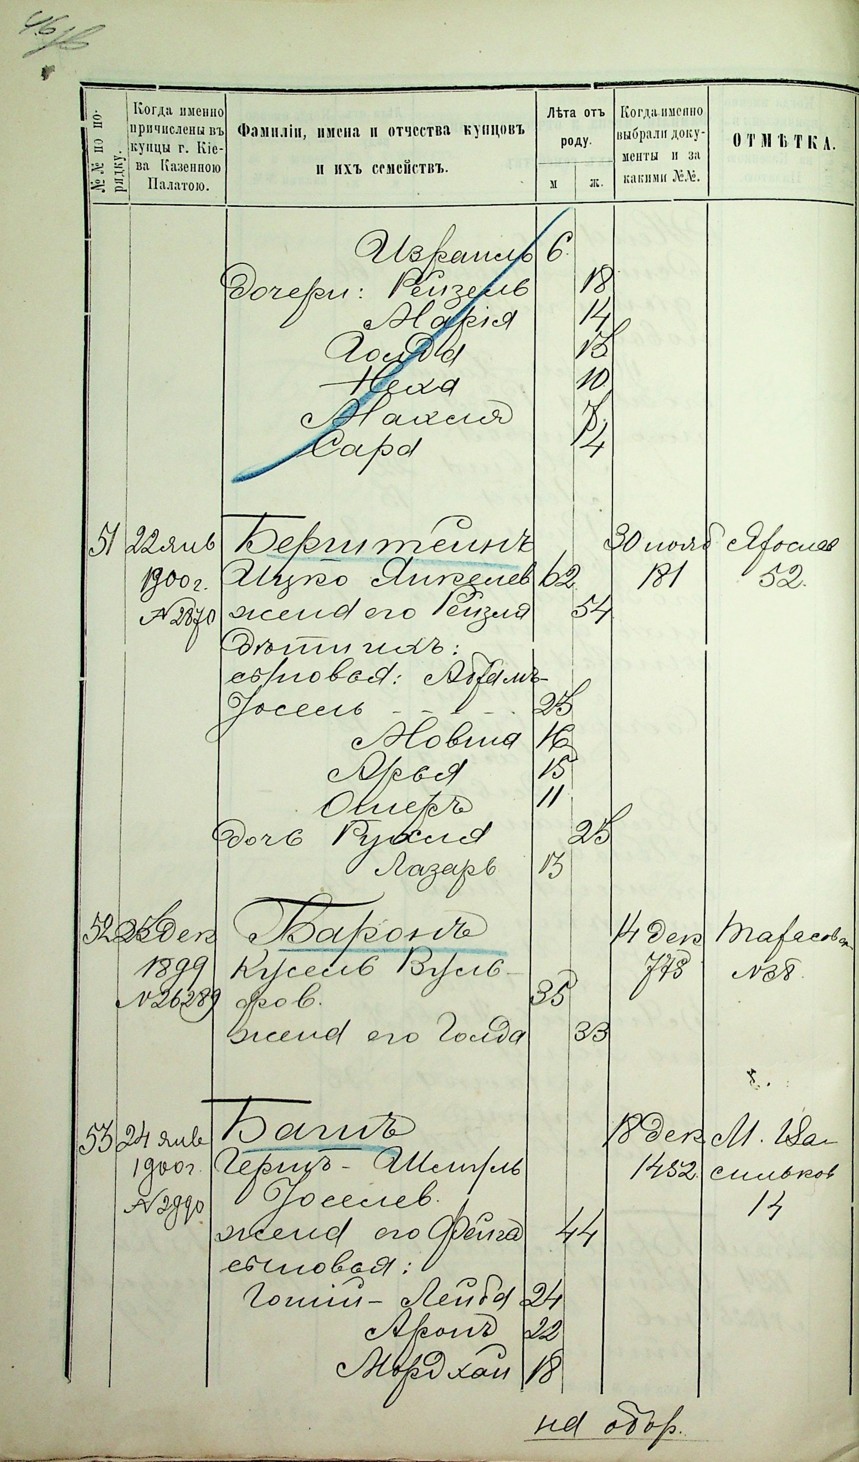 46
№№ по порядку.
Когда именно причислены въ купцы г. Кіева Казенною Палатою.
Фамиліи, имена и отчества купцовъ и ихъ семействъ.
Лѣта отъ роду.
м
ж.
Когда именно выбрали документы и за какими №№.
ОТМѢТКА.
Израиль 6
Дочери: Рейзель 18
Марія 14
Гольда 13
Неха 10
Махля 7
Сара 4
51 22 янв Бернштейнъ 30 нояб Яросла
1900 г. Ицко Янкелев 62 181 52.
№ 2870 жена его Рейзля 54
Дѣти ихъ:
сыновья: Абрамъ-
Іосель - - - 23
Мовша 16
Арья 15
Ошеръ 11
дочь Рухля 23
Лазарь 13
52 23 дек Баронъ 14 дек Тарасовск
1899 Кусель Вуль- 778 № 38
№ 26289 фов. 35
жена его Голда 33
53 24 янв Башъ 18 дек М. Ва-
1900 г. Герш - Шмуль 1452 сильков
№ 2990 Іоселев. 14
жена его Фейга 44
сыновья:
Гошій - Лейба 24
Аронъ 22
Мордхай 18
на обор.